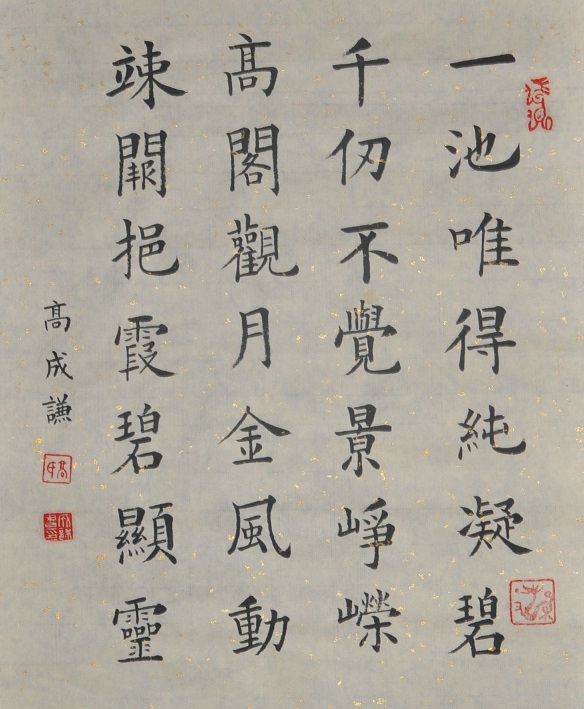 一池唯得純凝碧
千仞不覺景崢嶸
髙閣觀月金風動
竦闕挹霞碧顯靈
髙成謙